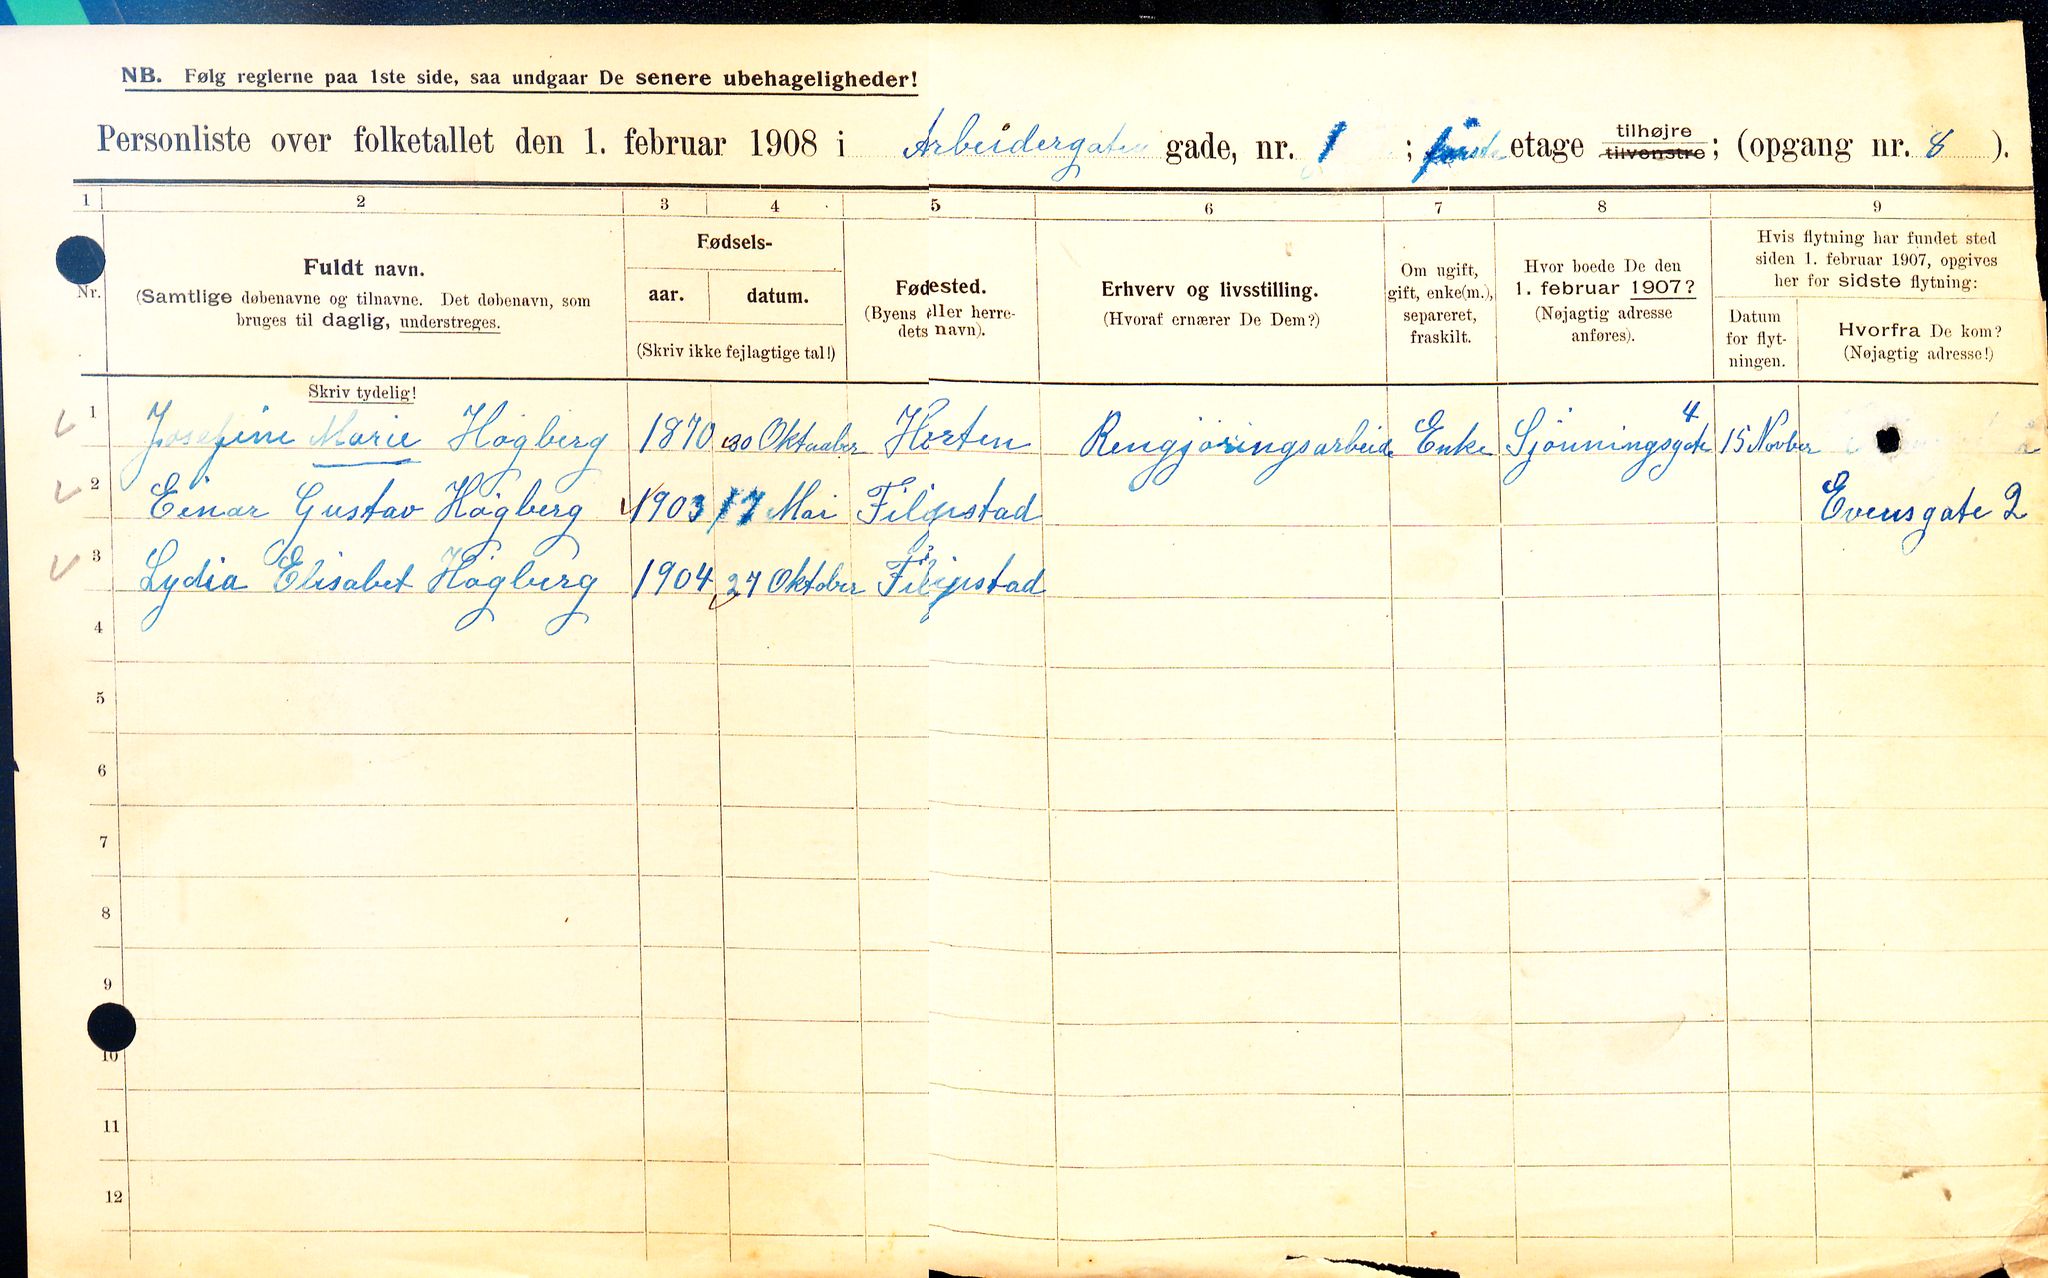 NB. Følg reglerne paa 1ste side, saa undgaar De senere ubehageligheder!
Personliste over folketallet den 1. februar 1908 i Arbeidergaten gade, nr. 1 ; første etage tilhøjre tilvenstre; (opgang nr. 8 ).
1 2 3 4 5 6 7 8 9
Nr.
Fuldt navn.
(Samtlige døbenavne og tilnavne. Det døbenavn, som
bruges til daglig, understreges.
Fødsels-
aar. datum.
(Skriv ikke fejlagtige tal!)
Fødested.
(Byens eller herre-
dets navn).
Erhverv og livsstilling.
(Hvoraf ernærer De Dem?)
Om ugift,
gift, enke(m.),
separeret,
fraskilt.
Hvor boede De den
1. februar 1907?
(Nøjagtig adresse
anføres).
Hvis flytning har fundet sted
siden 1. februar 1907, opgives
her for sidste flytning:
Datum
for flyt-
ningen.
Hvorfra De kom?
(Nøjagtig adresse!)
Skriv tydelig!
1 Josefine Marie Høgberg 1870 30 Oktober Horten Rengjøringsarbeide Enke Sjönningsgate 4 15 Novber
2 Einar Gustav Høgberg 1903 17 Mai Filipstad Evensgate 2
3 Lydia Elisabet Høgberg 1904 27 Oktober Filipstad
4
5
6
7
8
9
10
11
12